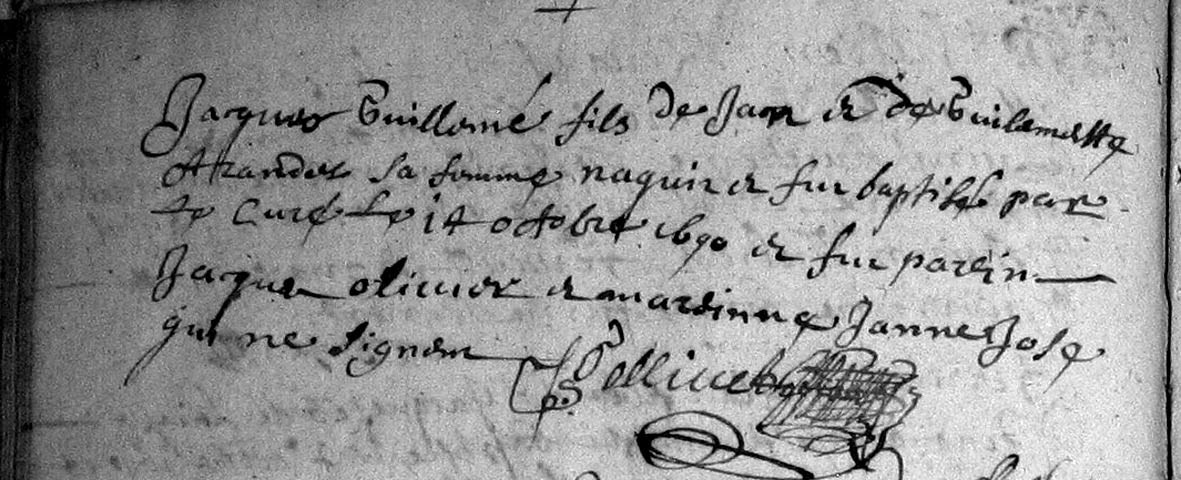 Jaques Guillomé fils de Jan et de Guilemette
sa femme naquit et fut baptisé par
le Curé le 14 octobre 1690 et fut parein
Jaques olivier et mareinne Janne Jose
qui ne signent